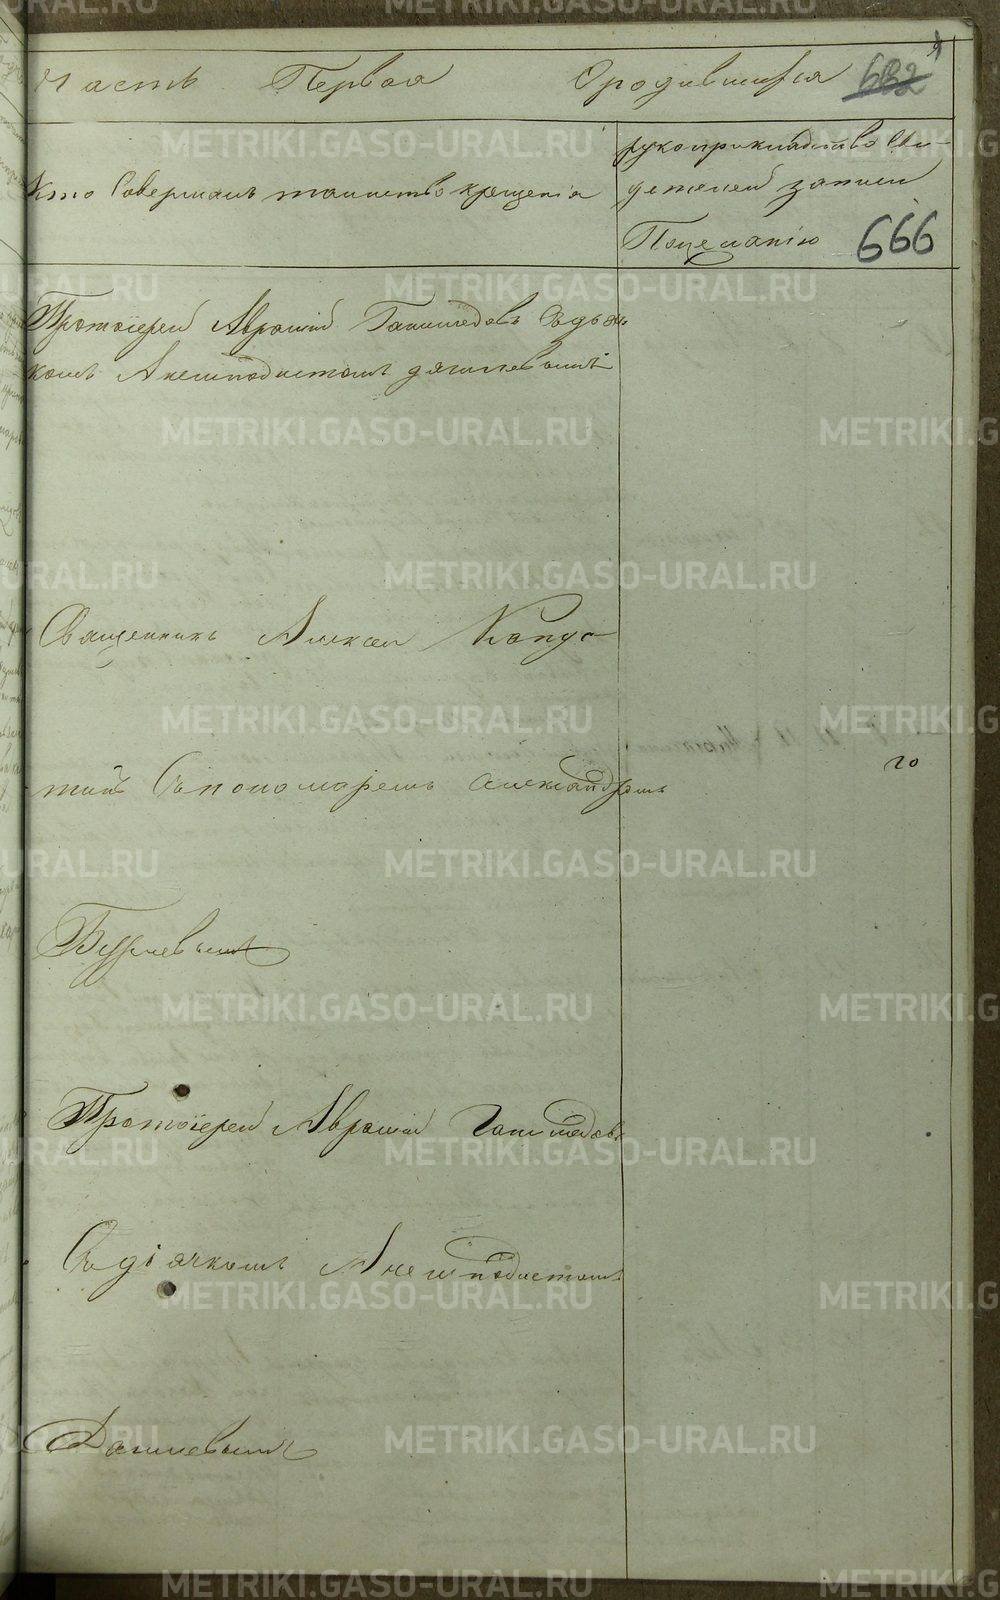 Часть Первая О родившихся 682
Кто Совершалъ таинство крещенія
рукоприкладство Сви-
детелей записи
По желанію 666
Протоіерей Аврамій Ганимедовъ Съ дья
комъ Анемподистомъ
Священникъ Алексей Капус
тинъ Съ пономаремъ Александромъ
го
Протоіерей Аврамій Ганимедовъ
Съ дьячкомъ Анемподистомъ
METRIKI.GASO-URAL.RU